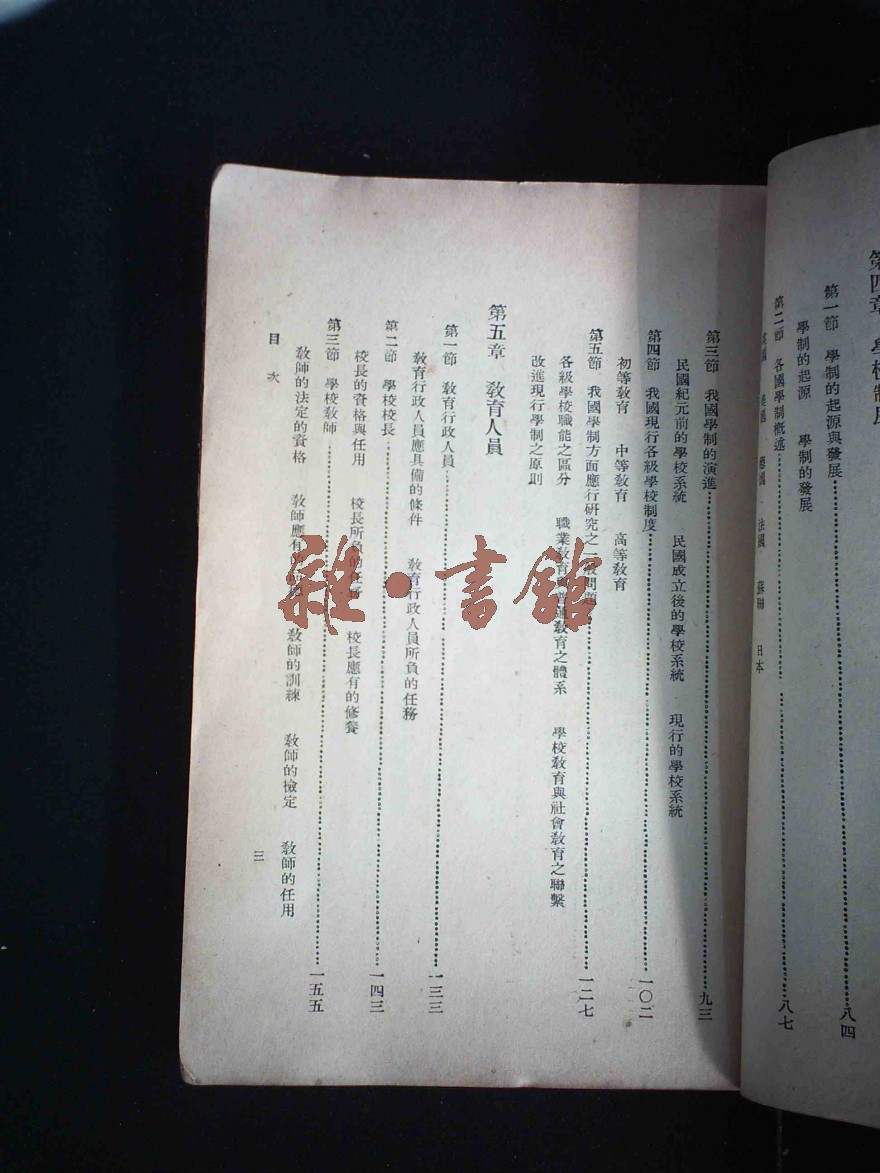 第四章　學校制度
第一節　學制的起源與發展……八四
學制的起源　學制的發展
第二節　各國學制概述……八七
英國　美國　德國　法國　蘇聯　日本
第三節　我國學制的演進……九三
民國紀元前的學校系統　民國成立後的學校系統　現行的學校系統
第四節　我國現行各級學校制度……一〇二
初等敎育　中等敎育　高等敎育
第五節　我國學制方面應行硏究之一般問題……一二七
各級學校職能之區分　職業敎育與普通敎育之體系　學校敎育與社會敎育之聯繫
改進現行學制之原則
第五章　敎育人員
第一節　敎育行政人員……一三三
敎育行政人員應具備的條件　敎育行政人員所負的任務
第二節　學校校長……一四三
校長的資格與任用　校長所負的任務　校長應有的修養
第三節　學校敎師……一五五
敎師的法定的資格　敎師應有的　敎師的訓練　敎師的檢定　敎師的任用
目次
三
雜·書館